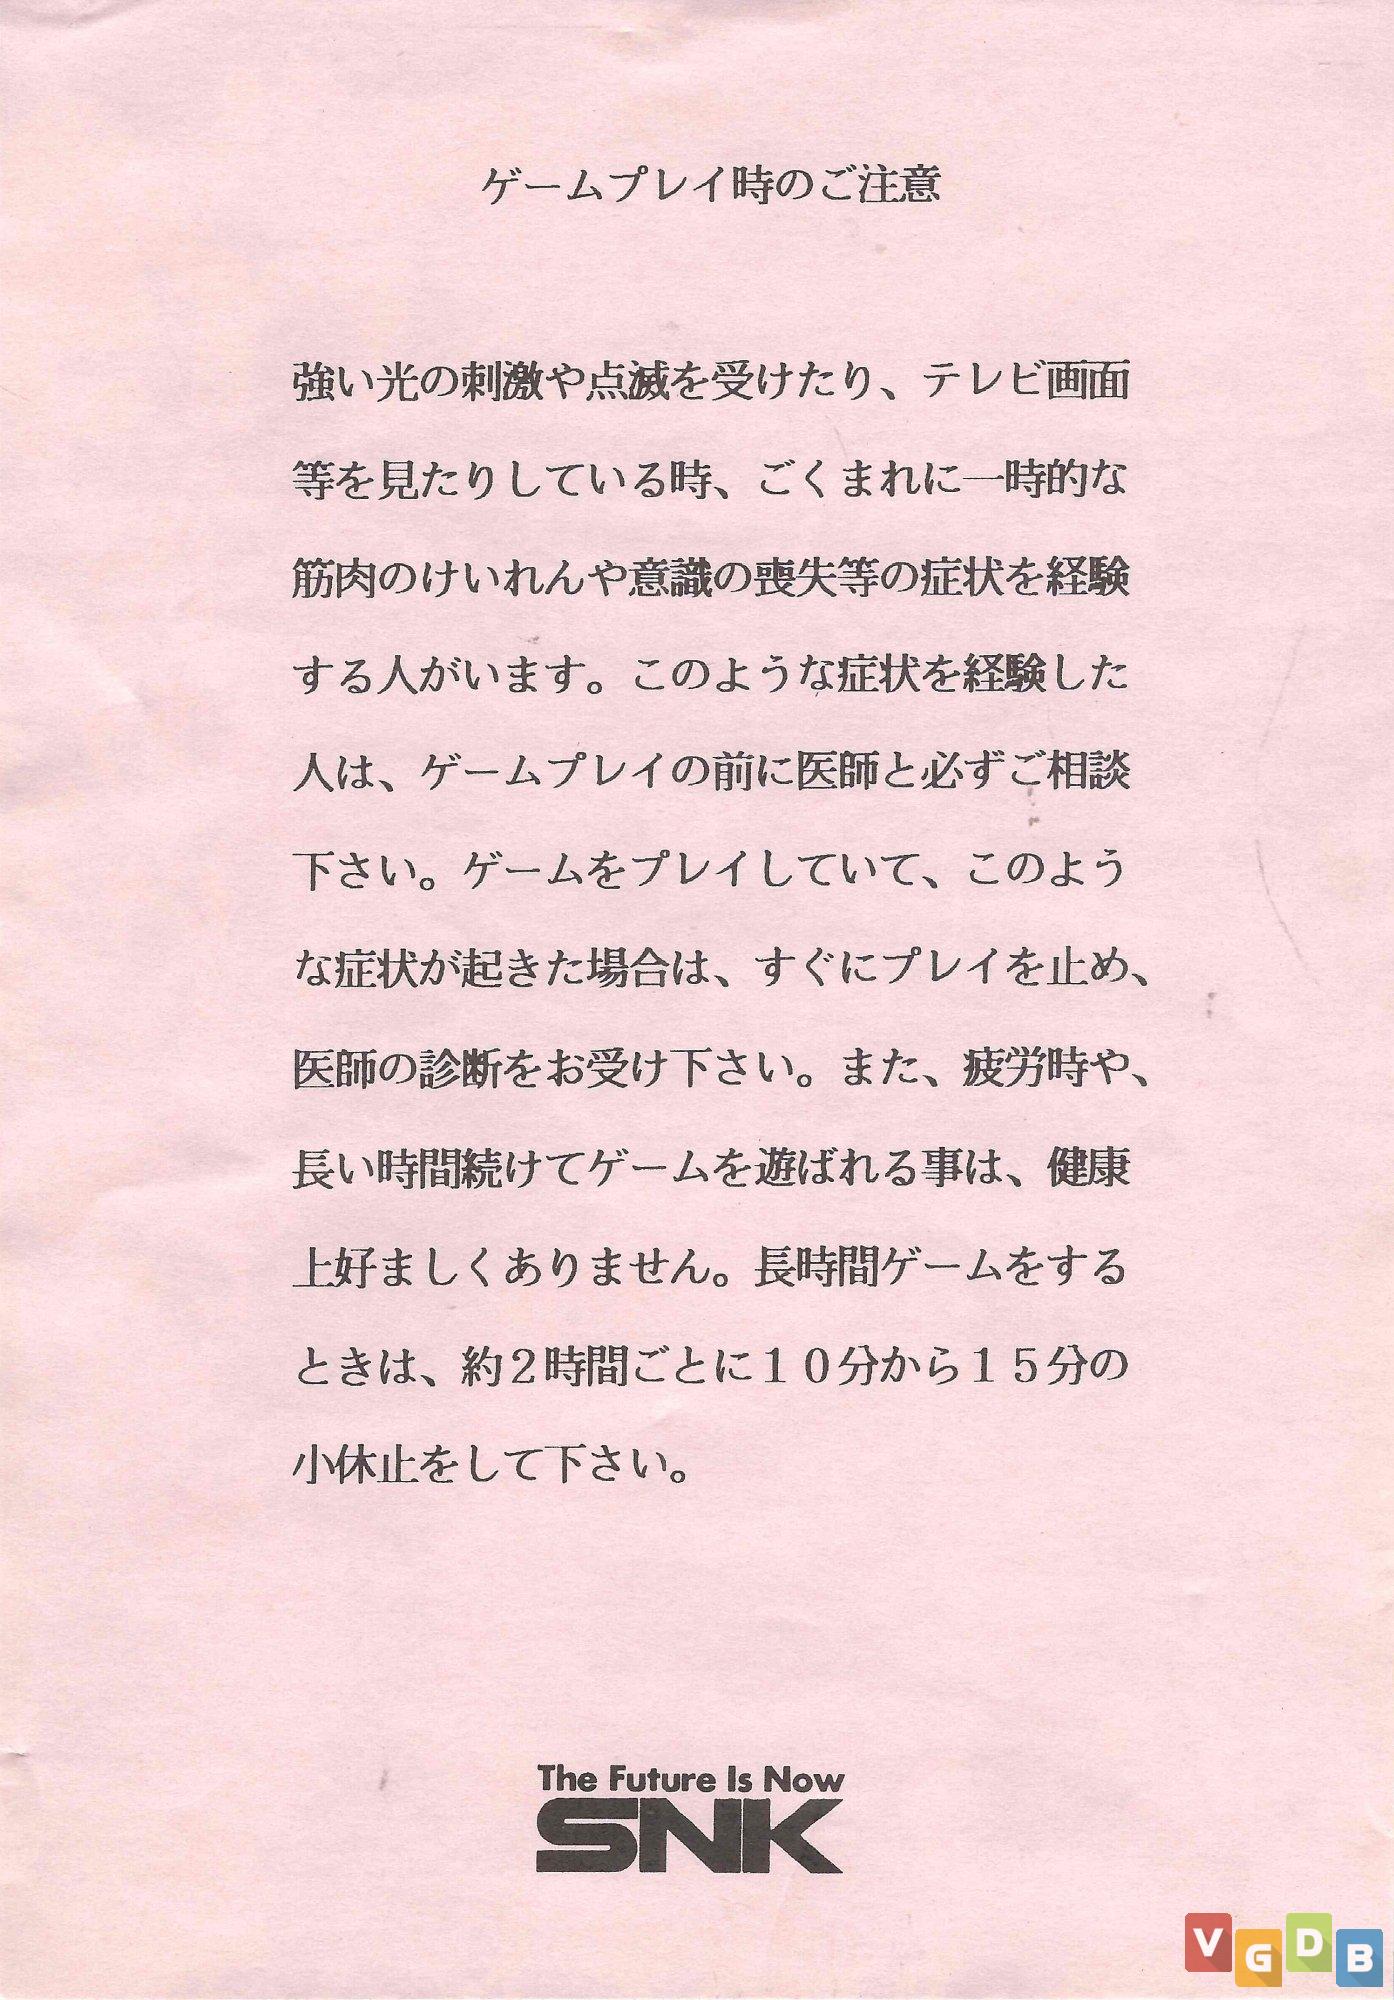 ゲームプレイ時のご注意
強い光の刺激や点滅を受けたり、テレビ画面
等を見たりしている時、ごくまれに一時的な
筋肉のけいれんや意識の喪失等の症状を経験
する人がいます。このような症状を経験した
人は、ゲームプレイの前に医師と必ずご相談
下さい。ゲームをプレイしていて、このよう
な症状が起きた場合は、すぐにプレイを止め、
医師の診断をお受け下さい。また、疲労時や、
長い時間続けてゲームを遊ばれる事は、健康
上好ましくありません。長時間ゲームをする
ときは、約２時間ごとに１０分から１５分の
小休止をして下さい。
The Future Is Now
SNK
VGDB